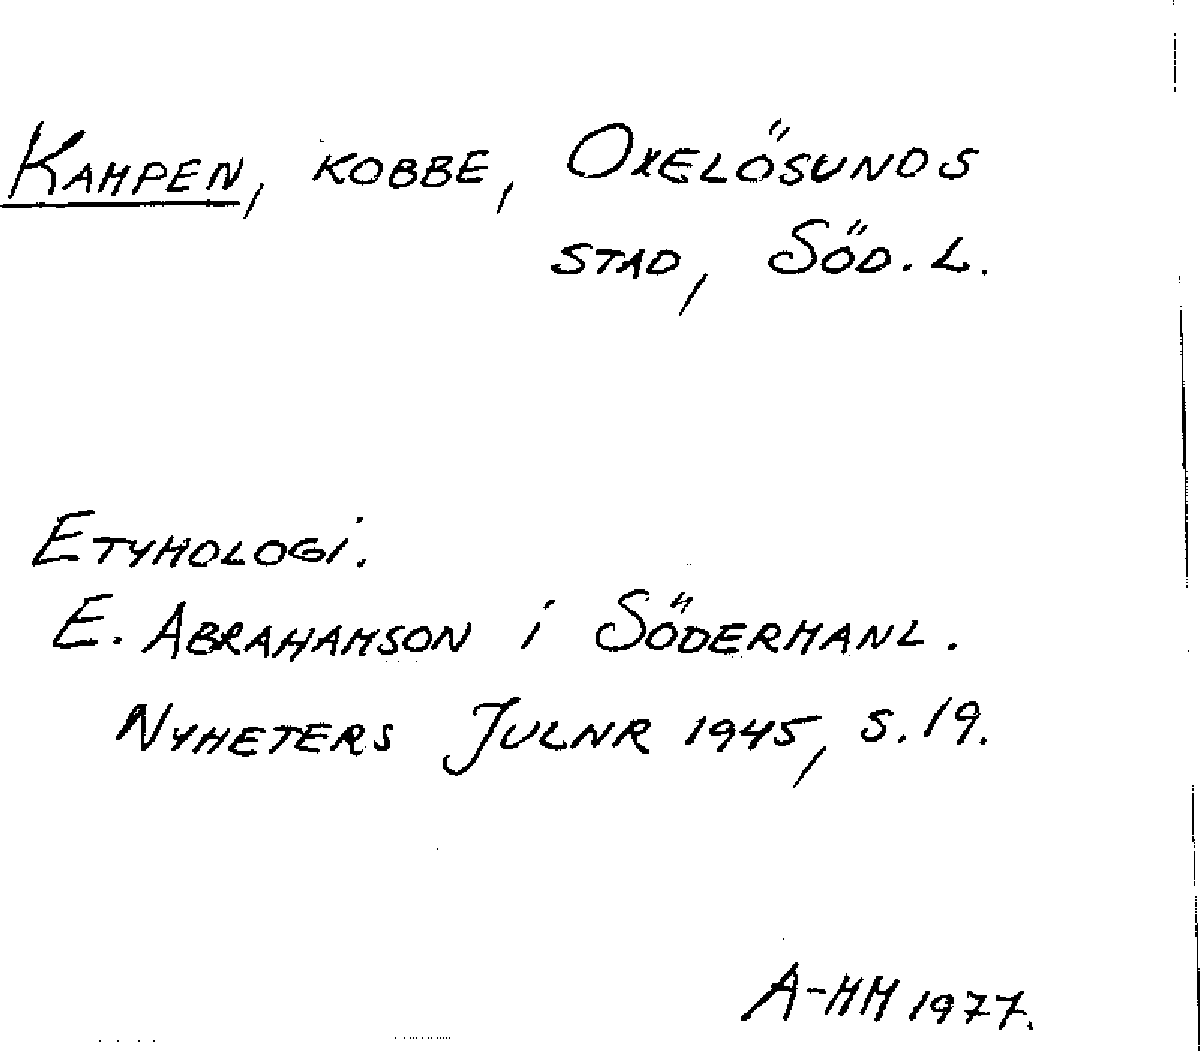 Kampen, kobbe, Oxelösunds
stad, Söd. L.
Etymologi.
E. Abrahamson i Södermanl.
Nyheters Julnr 1945, s. 19.
A-MM 1977.